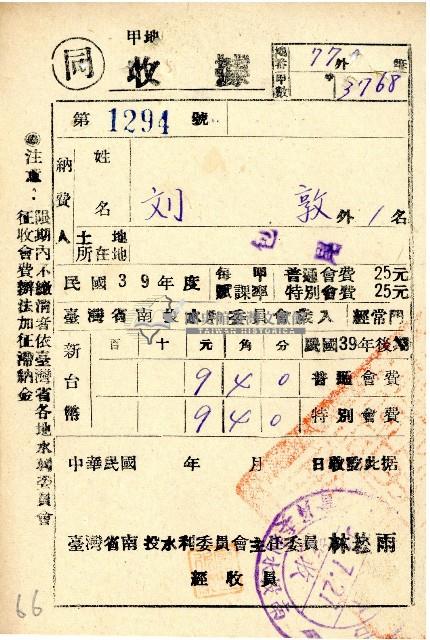 甲地
同
收據
地番 77 外 筆
甲數 3768
第 1294 號
納費人
姓名 刘 敦 外 1 名
土地所在地
民國39年度
每甲賦課率 普通會費 25元
特別會費 25元
臺灣省南投水利委員會 經常門
新台幣 百 十 元 角 分 民國39年後期
9 4 0 普通會費
9 4 0 特別會費
中華民國 年 月 日收訖此据
臺灣省南投水利委員會主任委員 林崧雨
經收員
注意：
限期內不繳清者依臺灣省各地水利委員會
征收會費辦法加征滯納金
TAIWAN HISTORICA
66